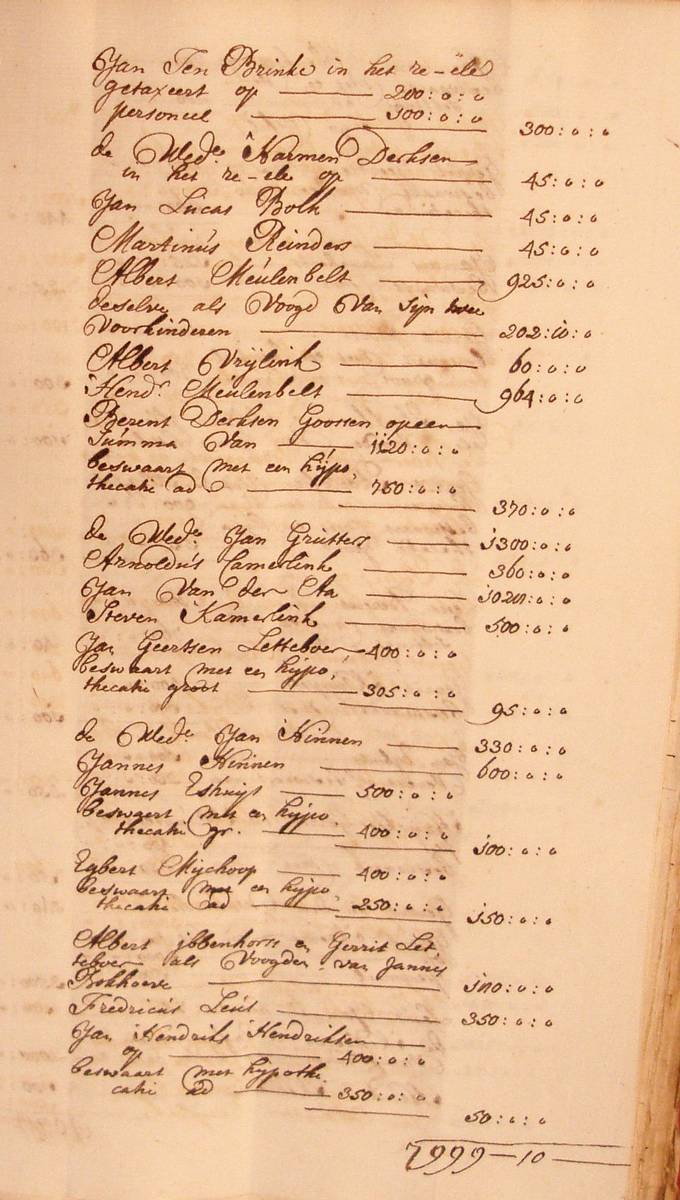 Jan Ten Brinke in het re-ële
getaxeert op — 200:0:0
personeel — 100:0:0
300:0:0
de Wede. Harmen Derksen
in het re-ele op — 45:0:0
Jan Lucas Bolk — 45:0:0
Martinús Reinders — 45:0:0
Albert Meúlenbelt — 925:0:0
deselve als Voogd van sijn twee
Voorkinderen — 202:10:0
Albert Vrijlink — 60:0:0
Hendr. Meúlenbelt — 964:0:0
Berent Derksen Goossen op een
Súmma van — 1120:0:0
beswaart met een hijpo,
thecatie ad — 750:0:0
370:0:0
de Wede. Jan Grútters — 1300:0:0
Arnoldús Camerlink — 360:0:0
Jan Van der Aa — 1020:0:0
Steven Kamerlink — 500:0:0
Jan Geertsen Letteboer — 400:0:0
beswaart met een hijpo,
thecatie groot — 305:0:0
95:0:0
de Wede. Jan Hinnen — 330:0:0
Jannes Hinnen — 600:0:0
Jannes Eshuijs — 500:0:0
beswaert met een hijpo,
thecatie gr. — 400:0:0
100:0:0
Egbert — 400:0:0
beswaart met een hijpo
thecatie ad — 250:0:0
150:0:0
Albert ibbenhorst en Gerrit Let,
teboer als Voogden van Jannes
Bokhoeve — :0:0
Fredricús Leús — 350:0:0
Jan Hendriks Hendriksen
op — 400:0:0
beswaart met hijpothe,
catie ad — 350:0:0
50:0:0
7999—10—